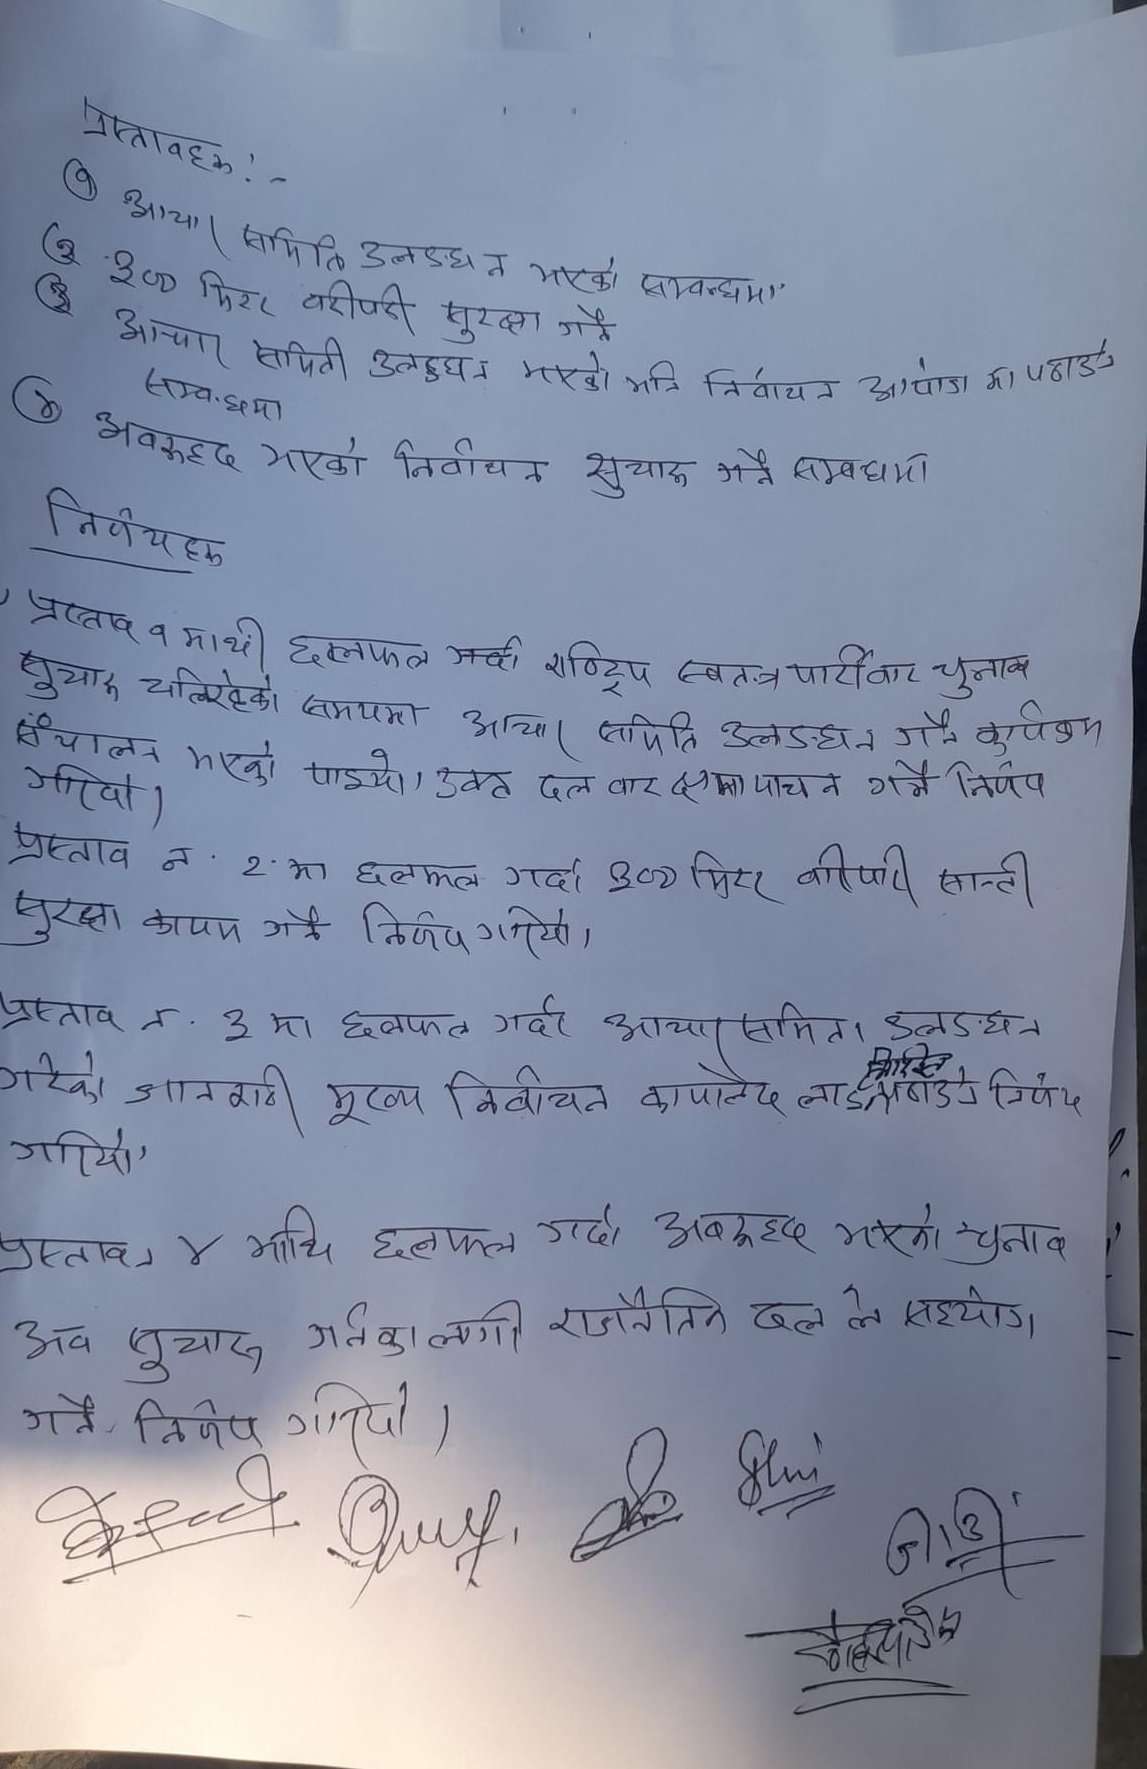 प्रस्तावहरू :-
(१) आचार समिति उलङघन भएको सम्बन्धमा
(२) ३०० मिटर वरीपरी सुरक्षा गर्ने
(३) आचार समिती उलङघन भएको भनि निर्वाचन आयोग मा पठाउने
सम्बन्धमा
(४) अवरूद्द भएको निर्वाचन सुचारू गर्ने सम्बधमा
निर्णयहरू
प्रस्ताव १ माथी छलफल गर्दा राष्ट्रिय स्वतन्त्र पार्टीवाट चुनाव
सुचारू चलिरहेको समयमा आचार समिति उलङघन गर्ने कार्यक्रम
संचालन भएको पाइयो। उक्त दल वाट क्षमायाचना गर्ने निर्णय
गरियो।
प्रस्ताव न. २ मा छलफल गर्दा ३०० मिटर वरीपरी सान्ती
सुरक्षा कायम गर्ने निर्णय गरियो।
प्रस्ताव न. ३ मा छलफल गर्दा आचार समिती उलङघन
गरेको जानकारी मूख्य निर्वाचन कार्यालय लाई पठाउने निर्णय
गरियो।
प्रस्ताव ४ माथि छलफल गर्दा अवरूद्द भएको चुनाव
अव सुचारू गर्नका लागी राजनैतिक दल ले सहयोग
गर्ने निर्णय गरियो।